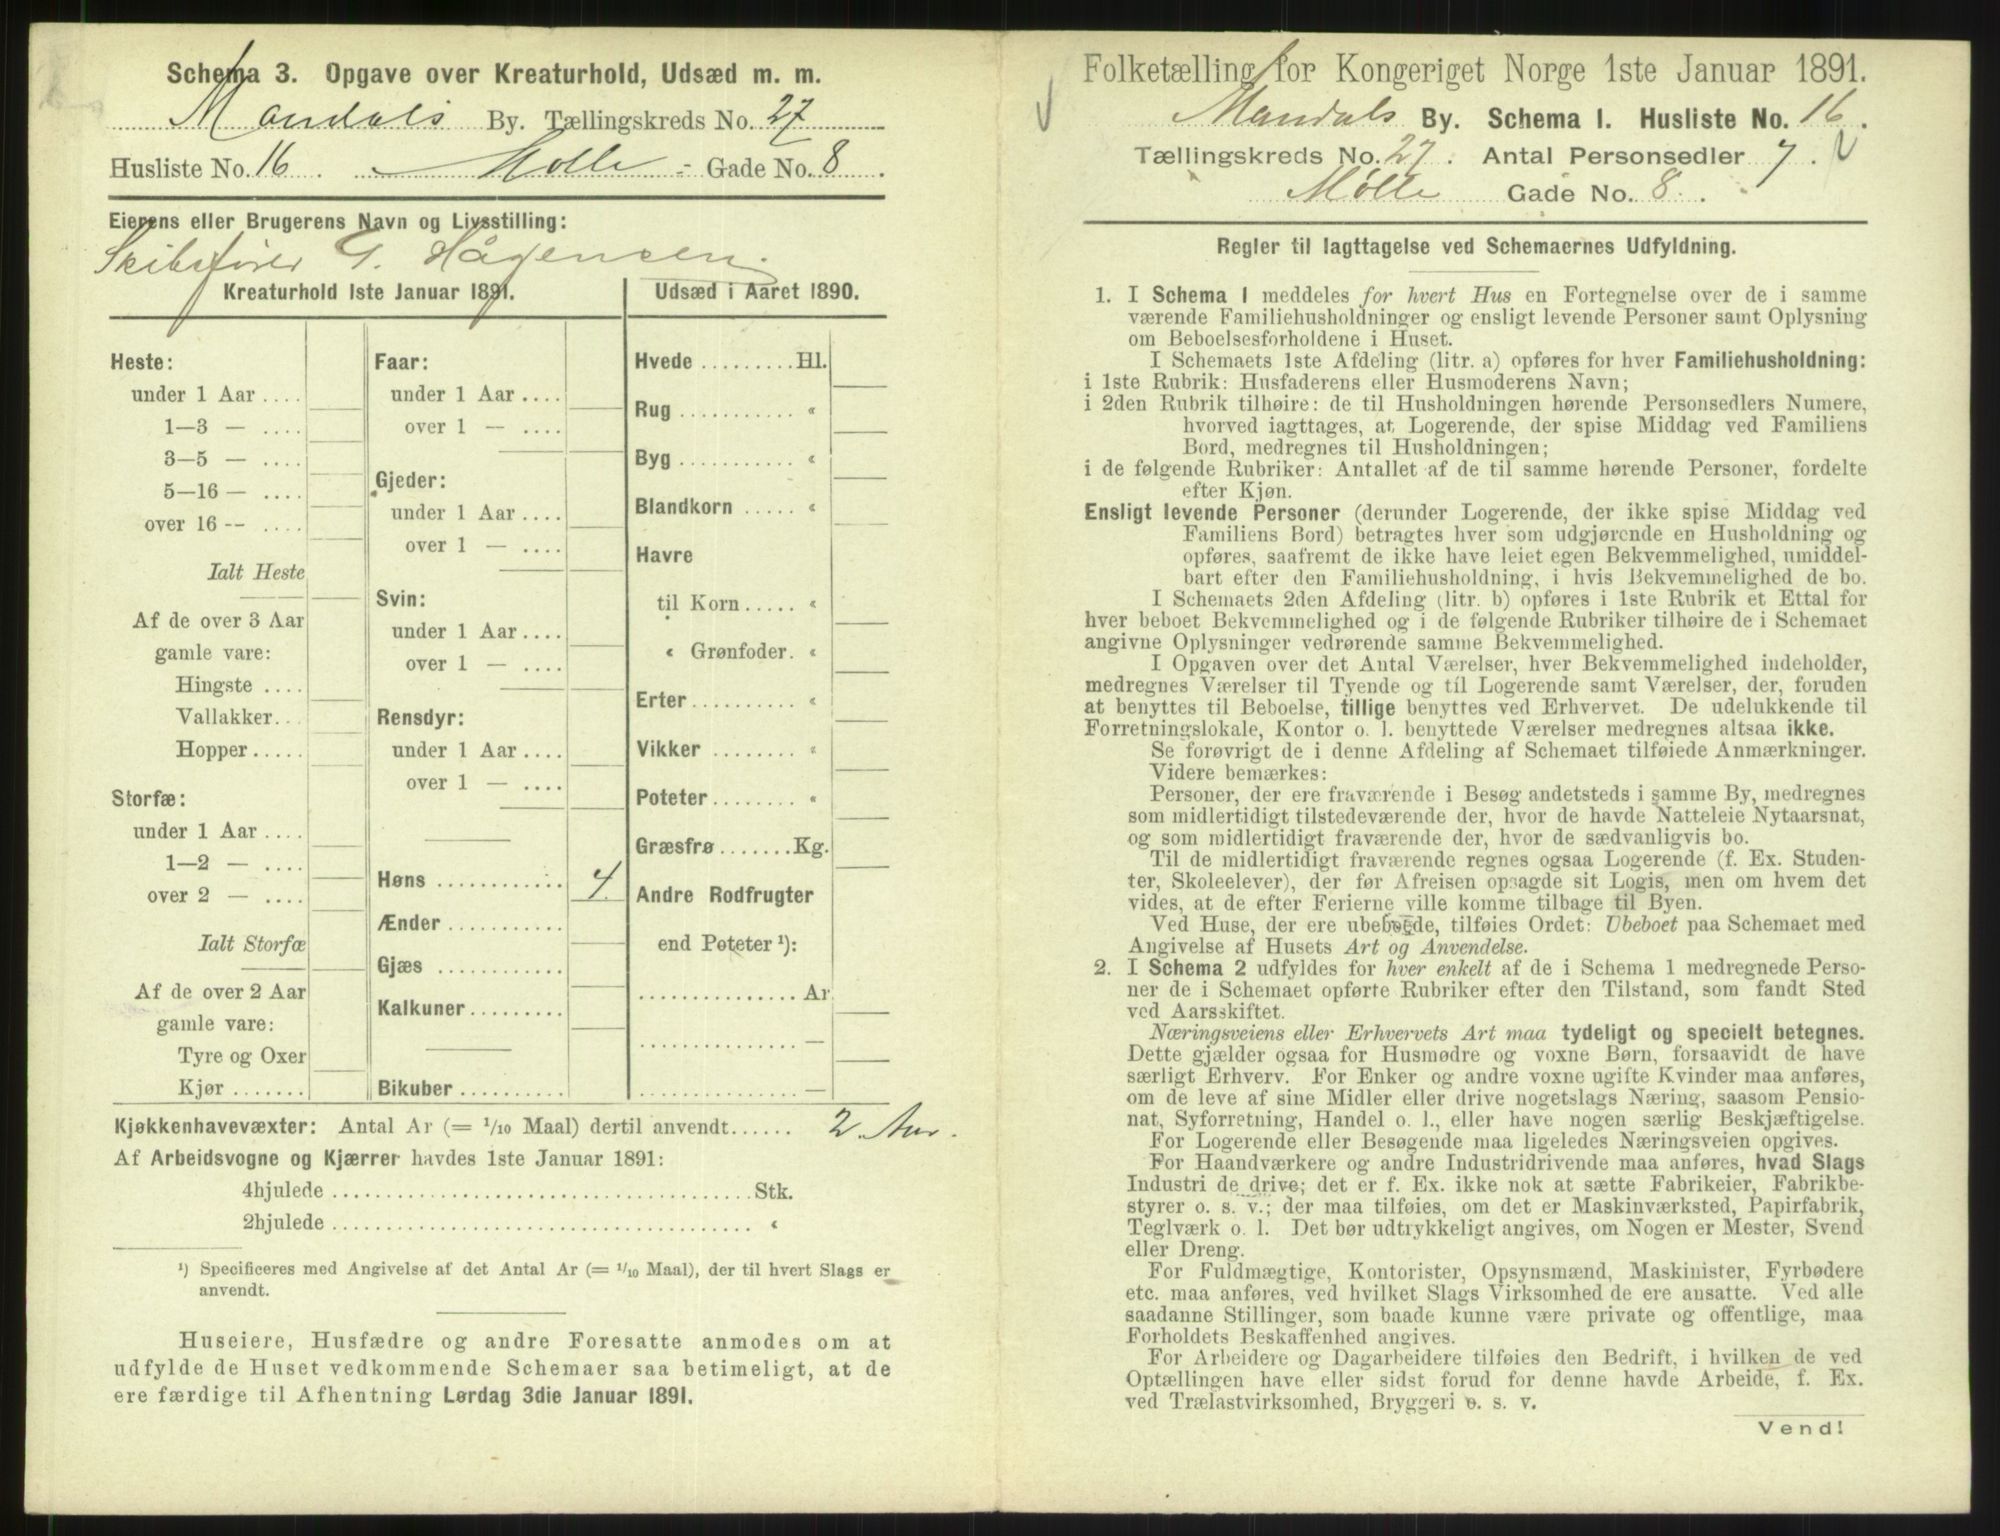 Schema 3. Opgave over Kreaturhold, Udsæd m. m.
Mandals By. Tællingskreds No. 27
Husliste No. 16 . Mølle - Gade No. 8 .
Eierens eller Brugerens Navn og Livsstilling:
Skibsfører G. Hågensen.
Kreaturhold 1ste Januar 1891.
Heste:
under 1 Aar ....
1—3 — ....
3—5 — ....
5—16 — ....
over 16 -- ....
Ialt Heste
Af de over 3 Aar
gamle vare:
Hingste ....
Vallakker...
Hopper.....
Storfæ:
under 1 Aar ....
1—2 — ....
over 2 — ....
Ialt Storfæ
Af de over 2 Aar
gamle vare:
Tyre og Oxer
Kjør .......
Faar:
under 1 Aar ....
over 1 — ....
Gjeder:
under 1 Aar ....
over 1 — ....
Svin:
under 1 Aar ....
over 1 — ....
Rensdyr:
under 1 Aar ....
over 1 — ....
Høns ............ 4.
Ænder ...........
Gjæs ............
Kalkuner.........
Bikuber ..........
Udsæd i Aaret 1890.
Hvede .........Hl.
Rug ........... "
Byg ........... "
Blandkorn ..... "
Havre
til Korn..... "
" Grønfoder. "
Erter.......... "
Vikker ........ "
Poteter........ "
Græsfrø .......Kg.
Andre Rodfrugter
end Poteter ¹):
............... Ar
............... —
............... —
Kjøkkenhavevæxter: Antal Ar (= 1/10 Maal) dertil anvendt...... 2 Aar.
Af Arbeidsvogne og Kjærrer havdes 1ste Januar 1891:
4hjulede ........................................Stk.
2hjulede ........................................ "
¹) Specificeres med Angivelse af det Antal Ar (= 1/10 Maal), der til hvert Slags er
anvendt.
Huseiere, Husfædre og andre Foresatte anmodes om at
udfylde de Huset vedkommende Schemaer saa betimeligt, at de
ere færdige til Afhentning Lørdag 3die Januar 1891.
Folketælling for Kongeriget Norge 1ste Januar 1891.
Mandals By. Schema I. Husliste No. 16 .
Tællingskreds No. 27 . Antal Personsedler 7 .
Mølle Gade No. 8 .
Regler til Iagttagelse ved Schemaernes Udfyldning.
1. I Schema I meddeles for hvert Hus en Fortegnelse over de i samme
værende Familiehusholdninger og ensligt levende Personer samt Oplysning
om Beboelsesforholdene i Huset.
I Schemaets 1ste Afdeling (litr. a) opføres for hver Familiehusholdning:
i 1ste Rubrik: Husfaderens eller Husmoderens Navn;
i 2den Rubrik tilhøire: de til Husholdningen hørende Personsedlers Numere,
hvorved iagttages, at Logerende, der spise Middag ved Familiens
Bord, medregnes til Husholdningen;
i de følgende Rubriker: Antallet af de til samme hørende Personer, fordelte
efter Kjøn.
Ensligt levende Personer (derunder Logerende, der ikke spise Middag ved
Familiens Bord) betragtes hver som udgjørende en Husholdning og
opføres, saafremt de ikke have leiet egen Bekvemmelighed, umiddel-
bart efter den Familiehusholdning, i hvis Bekvemmelighed de bo.
I Schemaets 2den Afdeling (litr. b) opføres i 1ste Rubrik et Ettal for
hver beboet Bekvemmelighed og i de følgende Rubriker tilhøire de i Schemaet
angivne Oplysninger vedrørende samme Bekvemmelighed.
I Opgaven over det Antal Værelser, hver Bekvemmelighed indeholder,
medregnes Værelser til Tyende og til Logerende samt Værelser, der, foruden
at benyttes til Beboelse, tillige benyttes ved Erhvervet. De udelukkende til
Forretningslokale, Kontor o. l. benyttede Værelser medregnes altsaa ikke.
Se forøvrigt de i denne Afdeling af Schemaet tilføiede Anmærkninger.
Videre bemærkes:
Personer, der ere fraværende i Besøg andetsteds i samme By, medregnes
som midlertidigt tilstedeværende der, hvor de havde Natteleie Nytaarsnat,
og som midlertidigt fraværende der, hvor de sædvanligvis bo.
Til de midlertidigt fraværende regnes ogsaa Logerende (f. Ex. Studen-
ter, Skoleelever), der før Afreisen opsagde sit Logis, men om hvem det
vides, at de efter Ferierne ville komme tilbage til Byen.
Ved Huse, der ere ubeboede, tilføies Ordet: Ubeboet paa Schemaet med
Angivelse af Husets Art og Anvendelse.
2. I Schema 2 udfyldes for hver enkelt af de i Schema 1 medregnede Perso-
ner de i Schemaet opførte Rubriker efter den Tilstand, som fandt Sted
ved Aarsskiftet.
Næringsveiens eller Erhvervets Art maa tydeligt og specielt betegnes.
Dette gjælder ogsaa for Husmødre og voxne Børn, forsaavidt de have
særligt Erhverv. For Enker og andre voxne ugifte Kvinder maa anføres,
om de leve af sine Midler eller drive nogetslags Næring, saasom Pensio-
nat, Syforretning, Handel o. l., eller have nogen særlig Beskjæftigelse.
For Logerende eller Besøgende maa ligeledes Næringsveien opgives.
For Haandværkere og andre Industridrivende maa anføres, hvad Slags
Industri de drive; det er f. Ex. ikke nok at sætte Fabrikeier, Fabrikbe-
styrer o. s. v.; der maa tilføies, om det er Maskinværksted, Papirfabrik,
Teglværk o. l. Det bør udtrykkeligt angives, om Nogen er Mester, Svend
eller Dreng.
For Fuldmægtige, Kontorister, Opsynsmænd, Maskinister, Fyrbødere
etc. maa anføres, ved hvilket Slags Virksomhed de ere ansatte. Ved alle
saadanne Stillinger, som baade kunne være private og offentlige, maa
Forholdets Beskaffenhed angives.
For Arbeidere og Dagarbeidere tilføies den Bedrift, i hvilken de ved
Optællingen have eller sidst forud for denne havde Arbeide, f. Ex.
ved Trælastvirksomhed, Bryggeri o. s. v.
Vend!